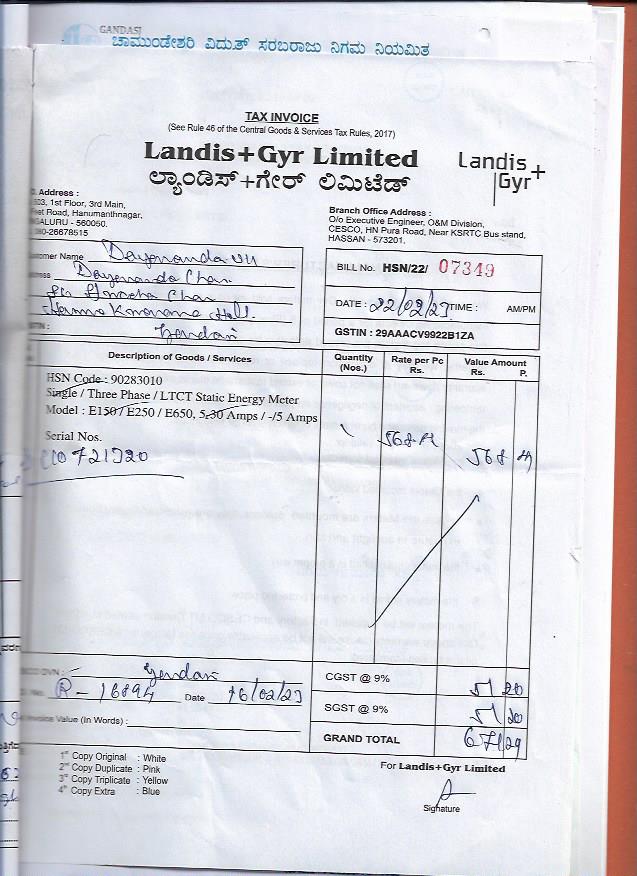 GANDASI
ಚಾಮುಂಡೇಶ್ವರಿ ವಿದ್ಯುತ್ ಸರಬರಾಜು ನಿಗಮ ನಿಯಮಿತ
TAX INVOICE
(See Rule 46 of the Central Goods & Services Tax Rules, 2017)
Landis+Gyr Limited
ಲ್ಯಾಂಡಿಸ್+ಗೇರ್ ಲಿಮಿಟೆಡ್
Landis+
Gyr
Address :
1st Floor, 3rd Main,
Road, Hanumanthnagar,
560050.
26678515
Branch Office Address :
O/o Executive Engineer, O&M Division,
CESCO, HN Pura Road, Near KSRTC Bus stand,
HASSAN - 573201.
Name Dayananda
Dayananda
BILL No. HSN/22/ 07349
DATE : 22/02/23 TIME : AM/PM
GSTIN : 29AAACV9922B1ZA
Description of Goods / Services
Quantity (Nos.)
Rate per Pc Rs.
Value Amount Rs. P.
HSN Code : 90283010
Single / Three Phase / LTCT Static Energy Meter
Model : E150 / E250 / E650, 5-30 Amps / -/5 Amps
Serial Nos.
568
568
CGST @ 9%
51 20
R - 16894 Date 16/02/23
SGST @ 9%
51 20
Value (In Words) :
GRAND TOTAL
671 29
1st Copy Original : White
2nd Copy Duplicate : Pink
3rd Copy Triplicate : Yellow
4th Copy Extra : Blue
For Landis+Gyr Limited
Signature